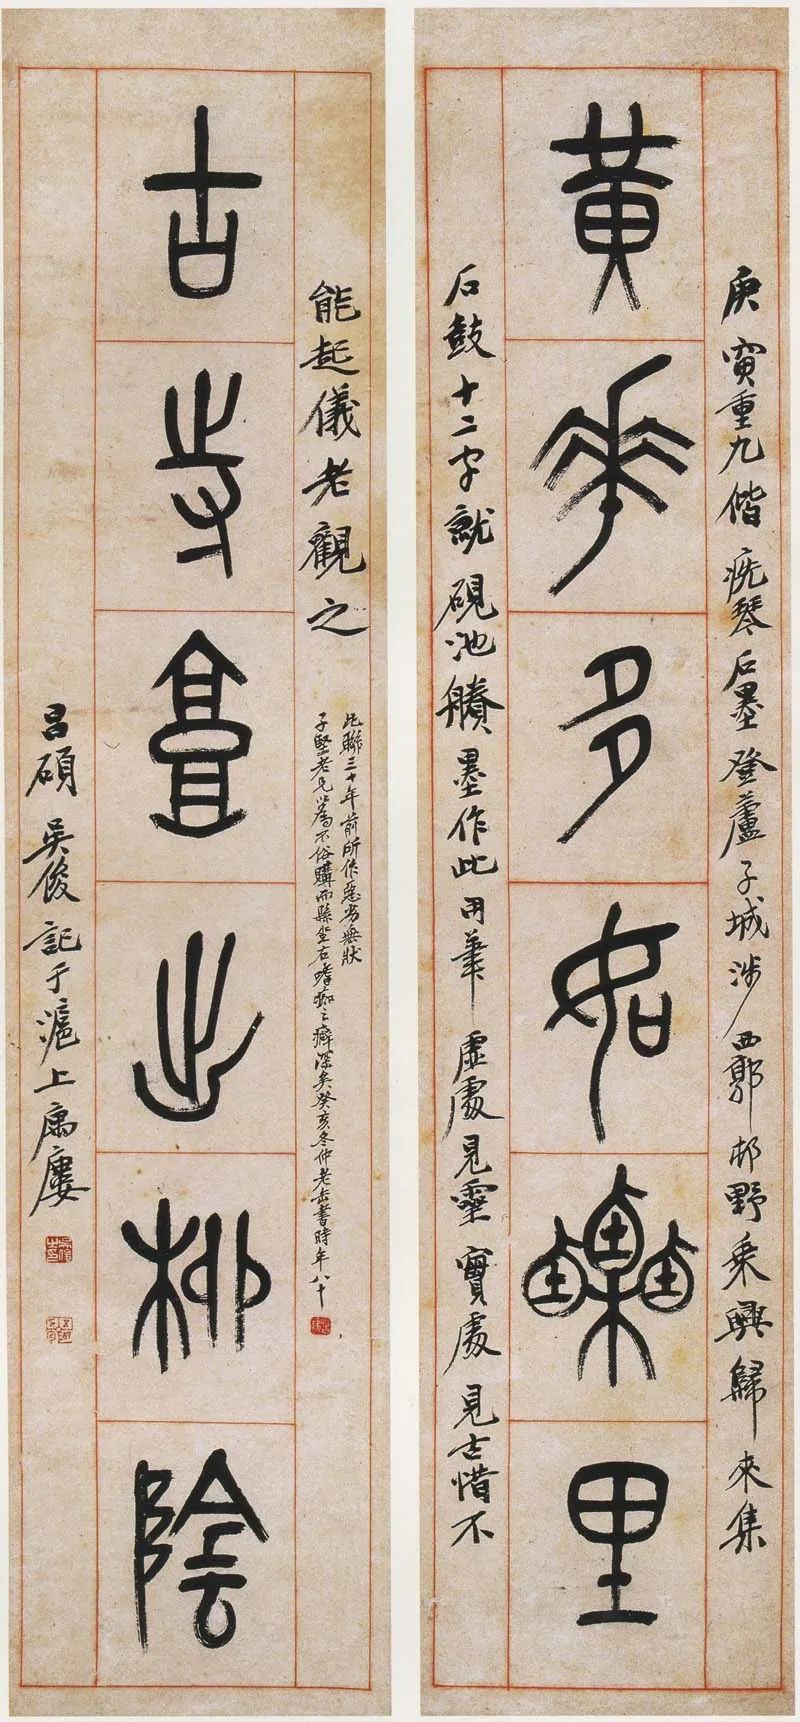 黃華多如栗里
庚寅重九偕琴石墨登蘆子城涉西郭邨野乘興歸來集
石鼓十二字就硯池賸墨作此用筆虛處見靈實處見古惜不
古寺出柳陰
能起儀老觀之
此聯三十年前所作惡劣無狀
子堅老兄以爲不俗購而縣坐右嗜痂之癖深矣癸亥冬仲老缶書時年八十
昌碩吳俊記于滬上寓廔